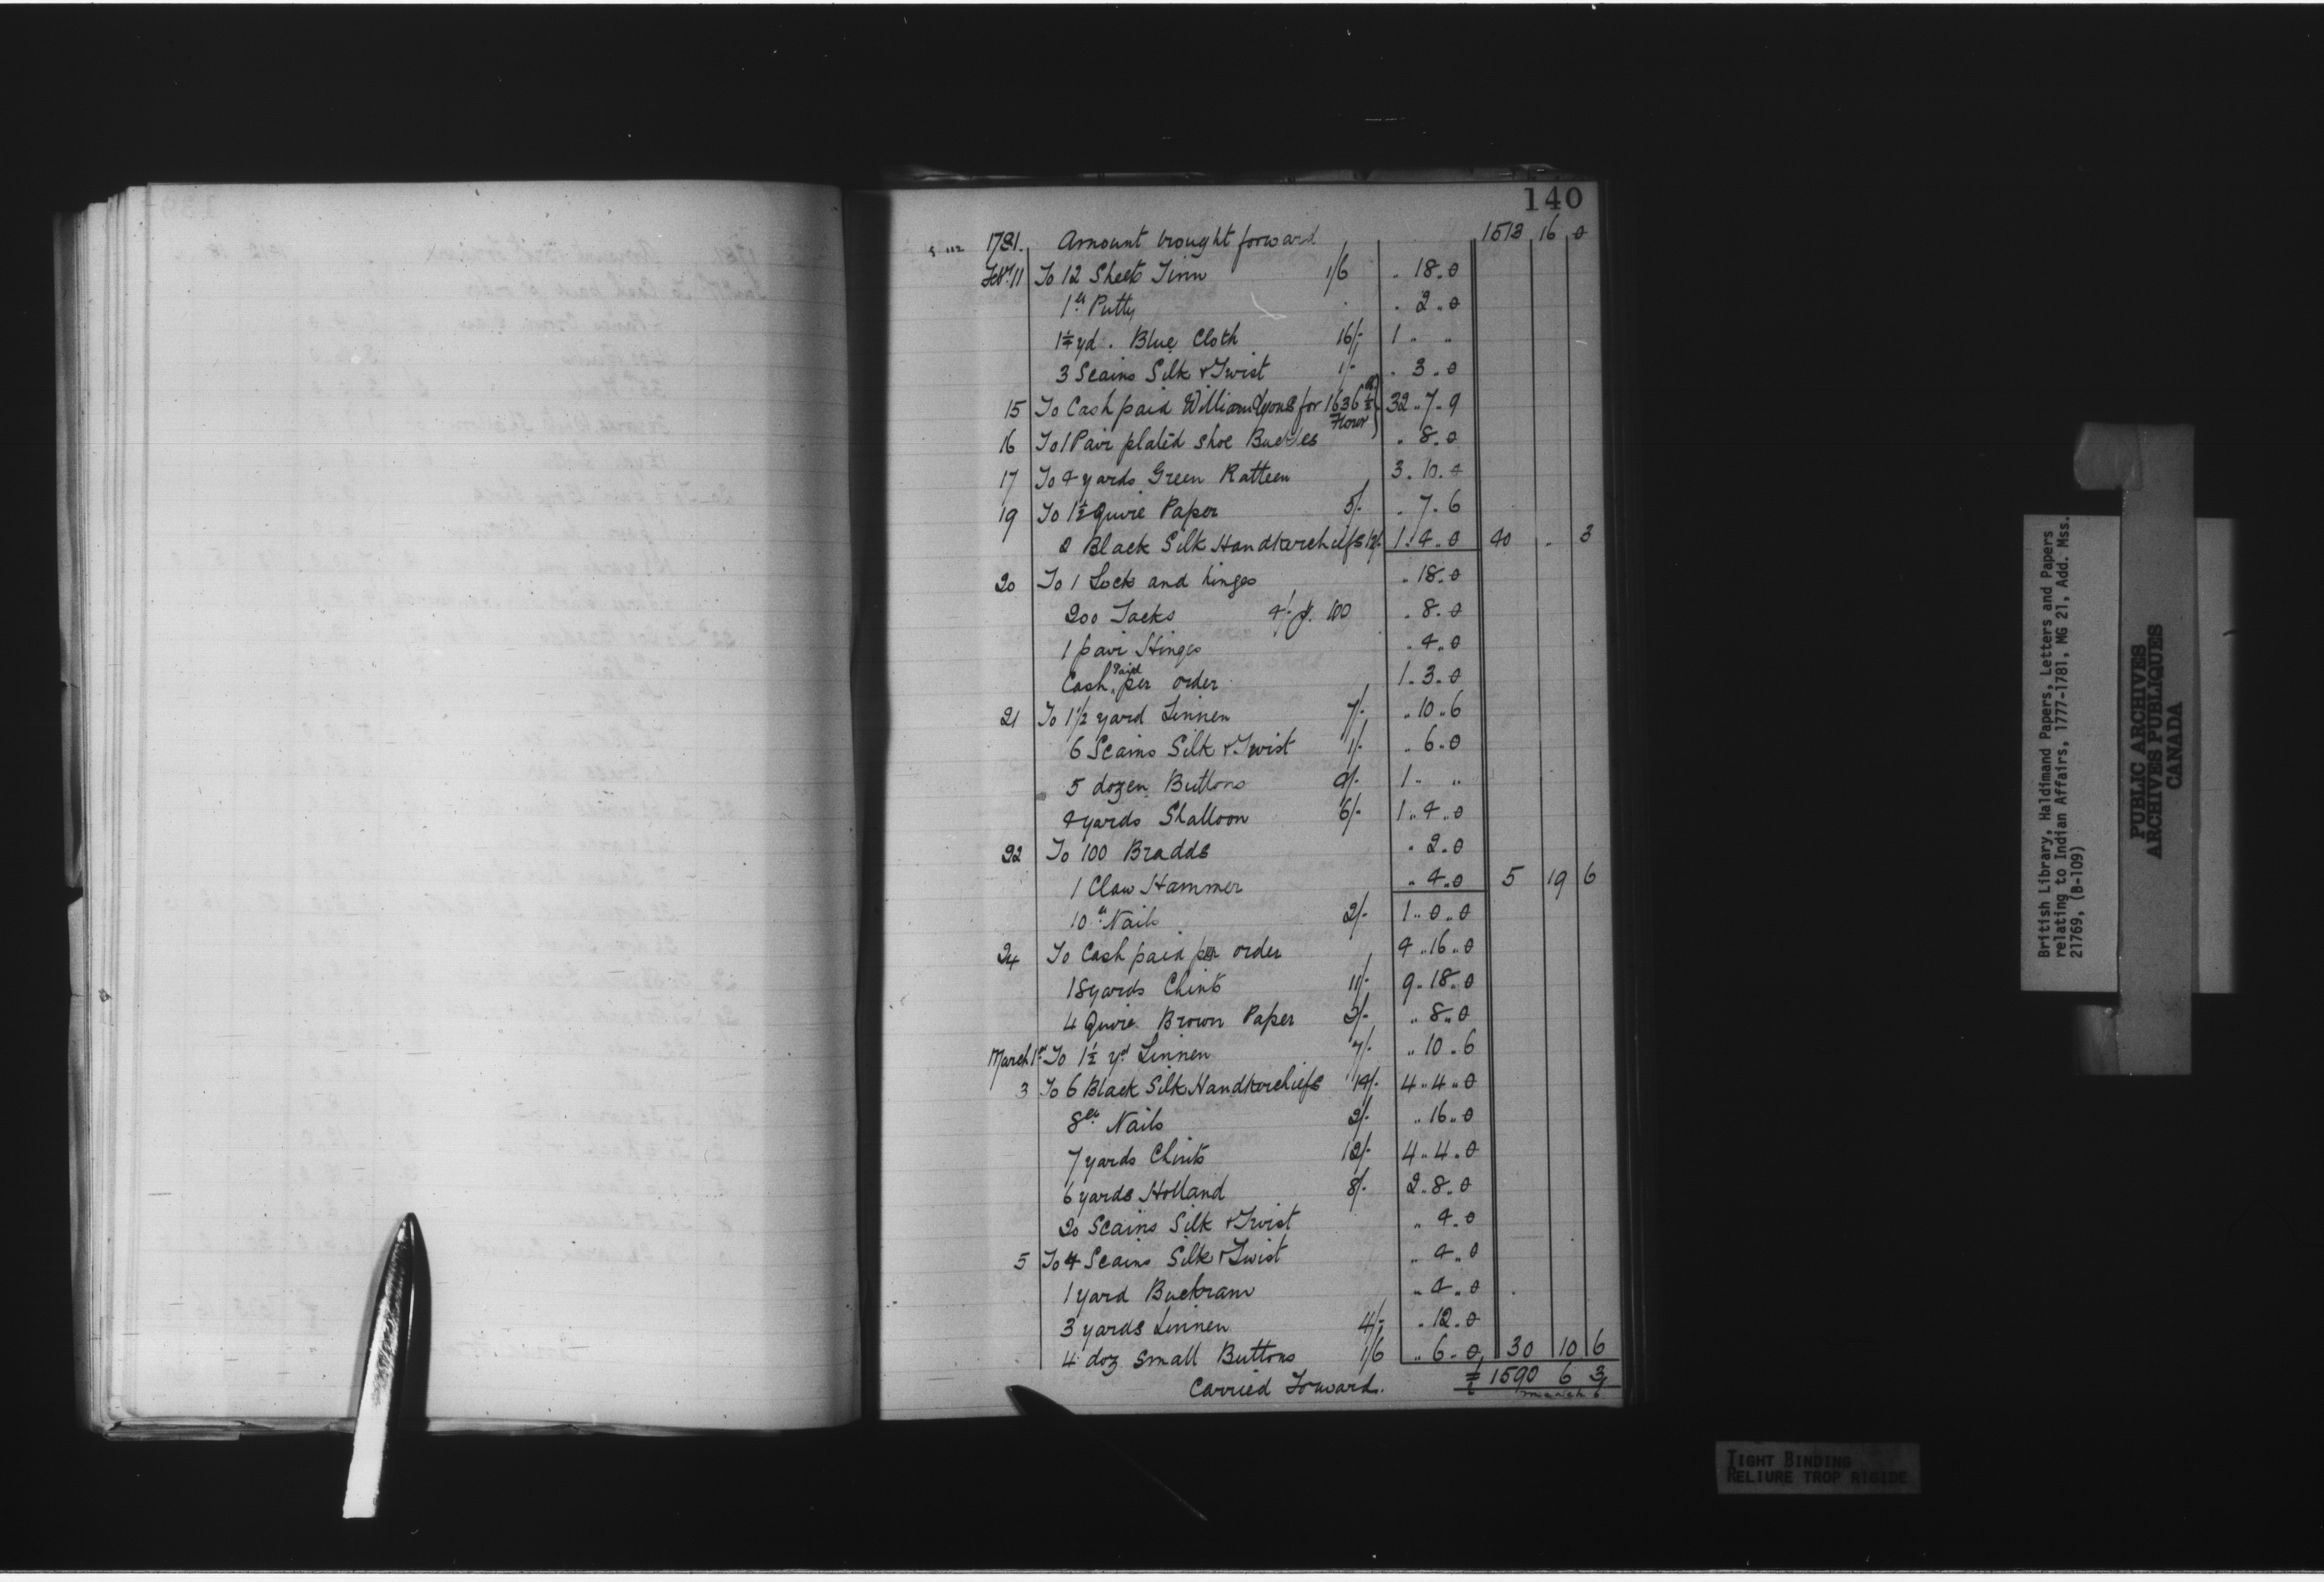 140
1781. Amount brought forward 1513 16 0
Feb' 11 To 12 Sheets Tinn 1/6 " 18 " 0
1 lb Putty " 2 " 0
1¼ yd. Blue Cloth 16/- 1 " "
3 Scains Silk & Twist 1/- " 3 " 0
15 To Cash paid William Lyons for 1636½ lb Flour 32 " 7 " 9
16 To 1 Pair plated shoe Buckles " 8 " 0
17 To 4 yards Green Ratteen 3 . 10 . 0
19 To 1½ Quire Paper 5/. " 7 " 6
2 Black Silk Handkerchiefs 12/. 1 . 4 . 0 40 " 3
20 To 1 Lock and hinges " 18 " 0
200 Tacks 4/- p. 100 " 8 " 0
1 pair Hinges " 4 " 0
Cash Paid per order 1 " 3 " 0
21 To 1 1/2 yard Linnen 7/- " 10 " 6
6 Scains Silk & Twist 1/- " 6 " 0
5 dozen Buttons 4/- 1 " "
4 yards Shalloon 6/- 1 " 4 " 0
22 To 100 Bradds " 2 " 0
1 Claw Hammer " 4 " 0 5 19 6
10 lb Nails 2/- 1 " 0 " 0
24 To Cash paid per order 4 " 16 " 0
18 yards Chints 11/- 9 " 18 " 0
4 Quire Brown Paper 2/- " 8 " 0
March 1st To 1½ yd Linnen 7/- " 10 " 6
3 To 6 Black Silk Handkerchiefs 14/- 4 " 4 " 0
8 lb Nails 2/- " 16 " 0
7 yards Chints 12/- 4 " 4 " 0
6 yards Holland 8/- 2 " 8 " 0
20 Scains Silk & Twist " 4 " 0
5 To 4 Scains Silk & Twist " 4 " 0
1 yard Buckram " 4 " 0
3 yards Linnen 4/- " 12 " 0
4 doz small Buttons 1/6 " 6 " 0 30 10 6
Carried Forward. £ 1590 6 3
March 6
British Library, Haldimand Papers, Letters and Papers
relating to Indian Affairs, 1777-1781, MG 21, Add. Mss.
21769, (B-109)
PUBLIC ARCHIVES
ARCHIVES PUBLIQUES
CANADA
TIGHT BINDING
RELIURE TROP RIGIDE